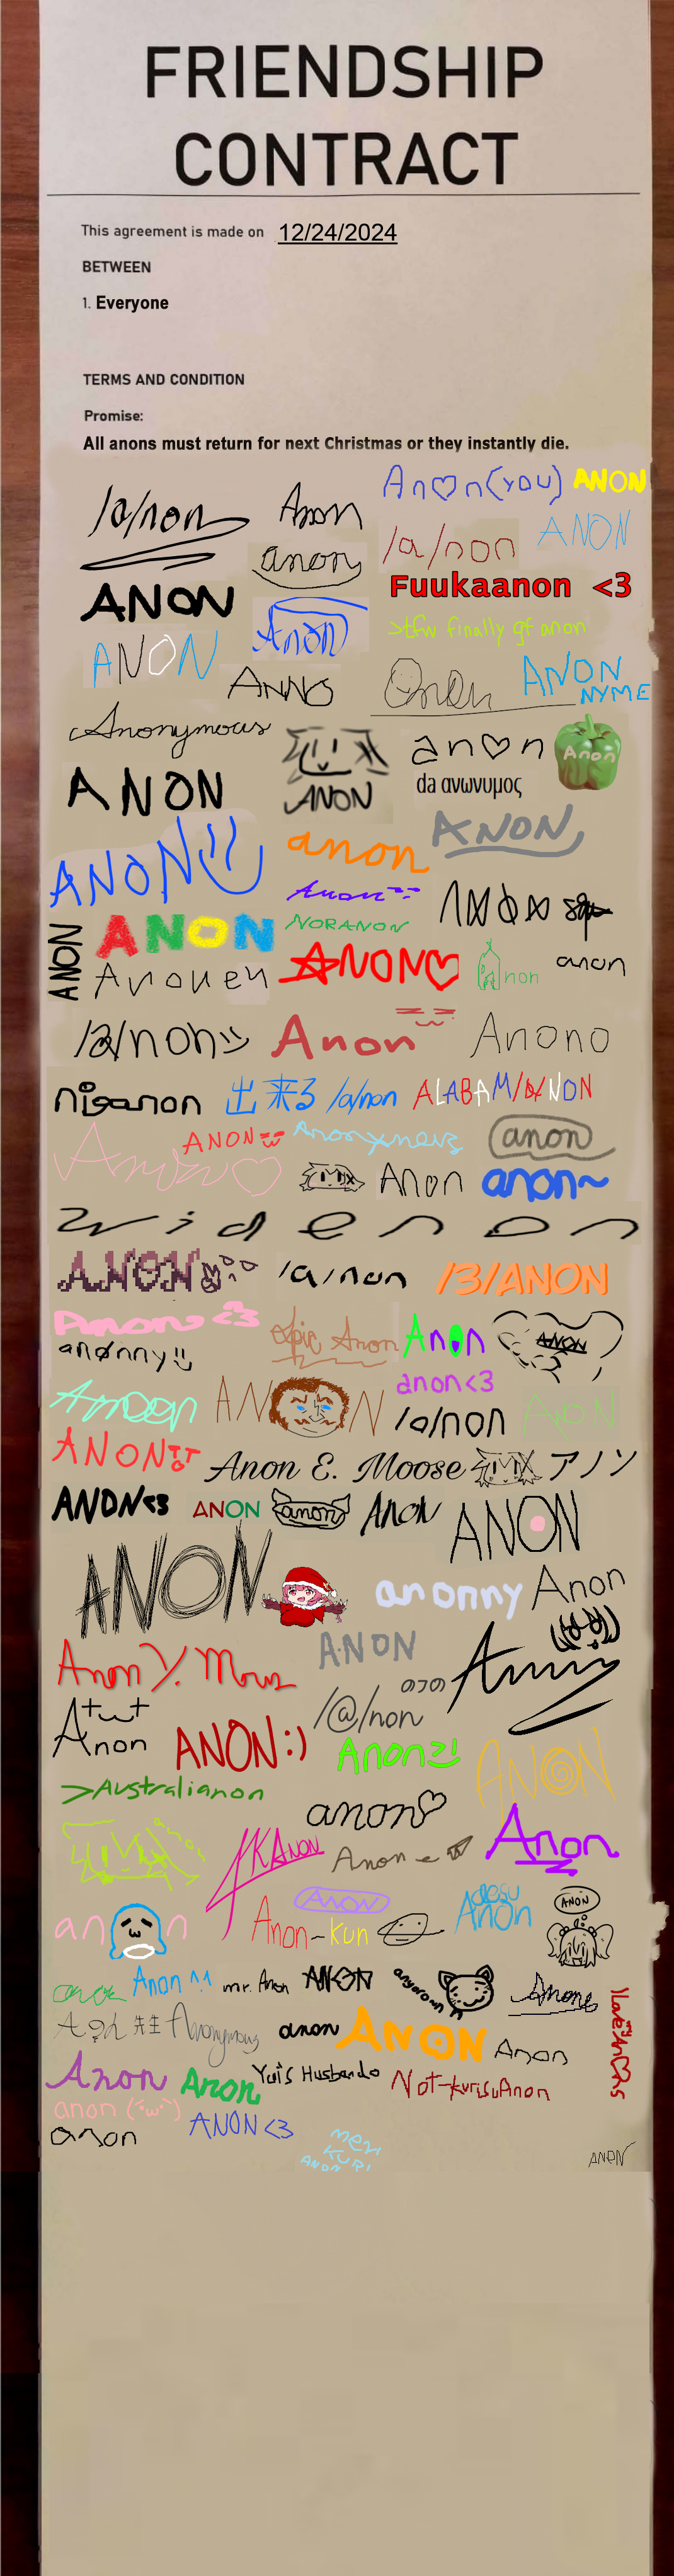 FRIENDSHIP
CONTRACT
This agreement is made on 12/24/2024
BETWEEN
1. Everyone
TERMS AND CONDITION
Promise:
All anons must return for next Christmas or they instantly die.
An♡n(you) ANON
/a/non Anon
/a/non ANON
anon
ANON Fuukaanon <3
Anon >tfw finally gf anon
ANON
ANNO ANON
NYME
Anonymous
an♡n Anon
ANON ANON da ανωνυμος
ANON
anon
ANON
Anon
NORANON
ANON ANON
ANON♡ anon anon
/a/non Anon Anono
nisanon 出来る /a/non ALABAM/A/NON
ANON anon
Anon♡
Anon anon~
Widenon
ANON /a/non /3/ANON
Anon <3
Epic Anon Anon ANON
anonny
anon<3
ANON /a/non ANON
ANON Anon E. Moose アノン
ANON<3 ANON anon Anon ANON
ANON
anonny Anon
ANON
Anon Y. Mous
/@/non
Anon
ANON:) Anon ANON
>Australianon
anon♡
KANON Anon Anon
anon ANON
Anon-kun desu
Anon ANON
Anon ^.^ mr. Anon ANON
Anone
先生 Anonymous anon ANON Anon
Anon Anon Yui's Husbando Not-kurisuAnon
anon (´ω`)
ANON <3
anon
merii
KURI
ANON